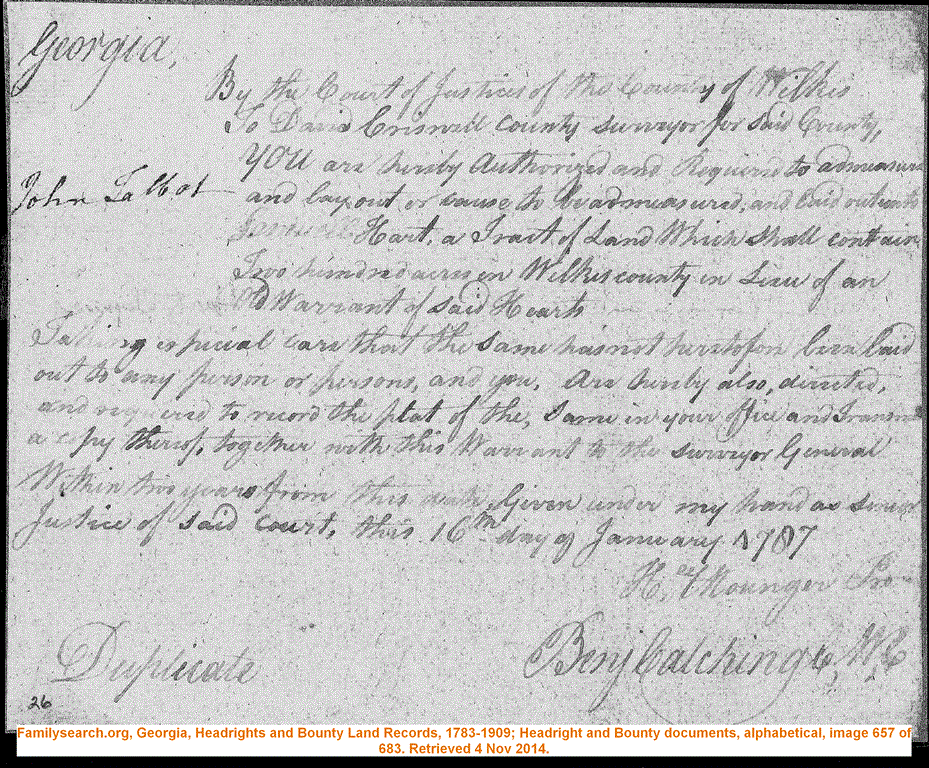 Georgia,
By the Court of Justices of the County of Wilkes
To David Criswell County surveyor for Said County,
YOU are herby Authorized and Required to admeasure
John Talbot
and lay out or cause to be admeasured, and Laid out unto
Hart, a Tract of Land Which shall contain
Two hundred acres in Wilkes county in Lieu of an
Old Warrant of said Hearts
Taking especial care that the Same has not heretofore been laid
out to any person or persons, and you, Are herby also, directed,
and required to record the plat of the, Same in your office and Transmit
a copy thereof, together with this Warrant to the surveyor General
Within two years from this date, Given under my hand as senior
Justice of said Court, this 16th day of January 1787
H. Mounger Pro
Duplicate
Benj Catching C, W, C
26
Familysearch.org, Georgia, Headrights and Bounty Land Records, 1783-1909; Headright and Bounty documents, alphabetical, image 657 of
683. Retrieved 4 Nov 2014.